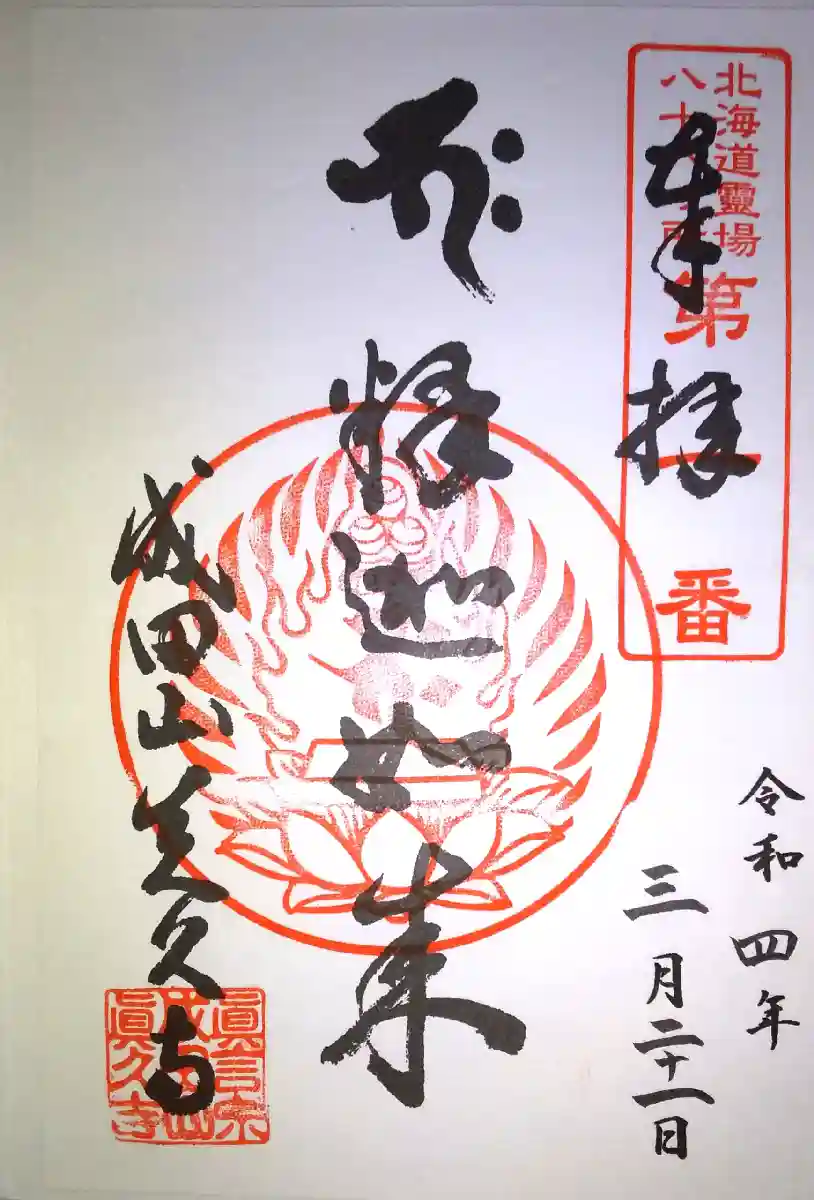 北海道靈場
八十八ヶ所
第一番
奉拝
令和四年
三月二十一日
𑖥𑖾
釋迦如来
成田山真久寺
眞言宗
成田山
眞久寺